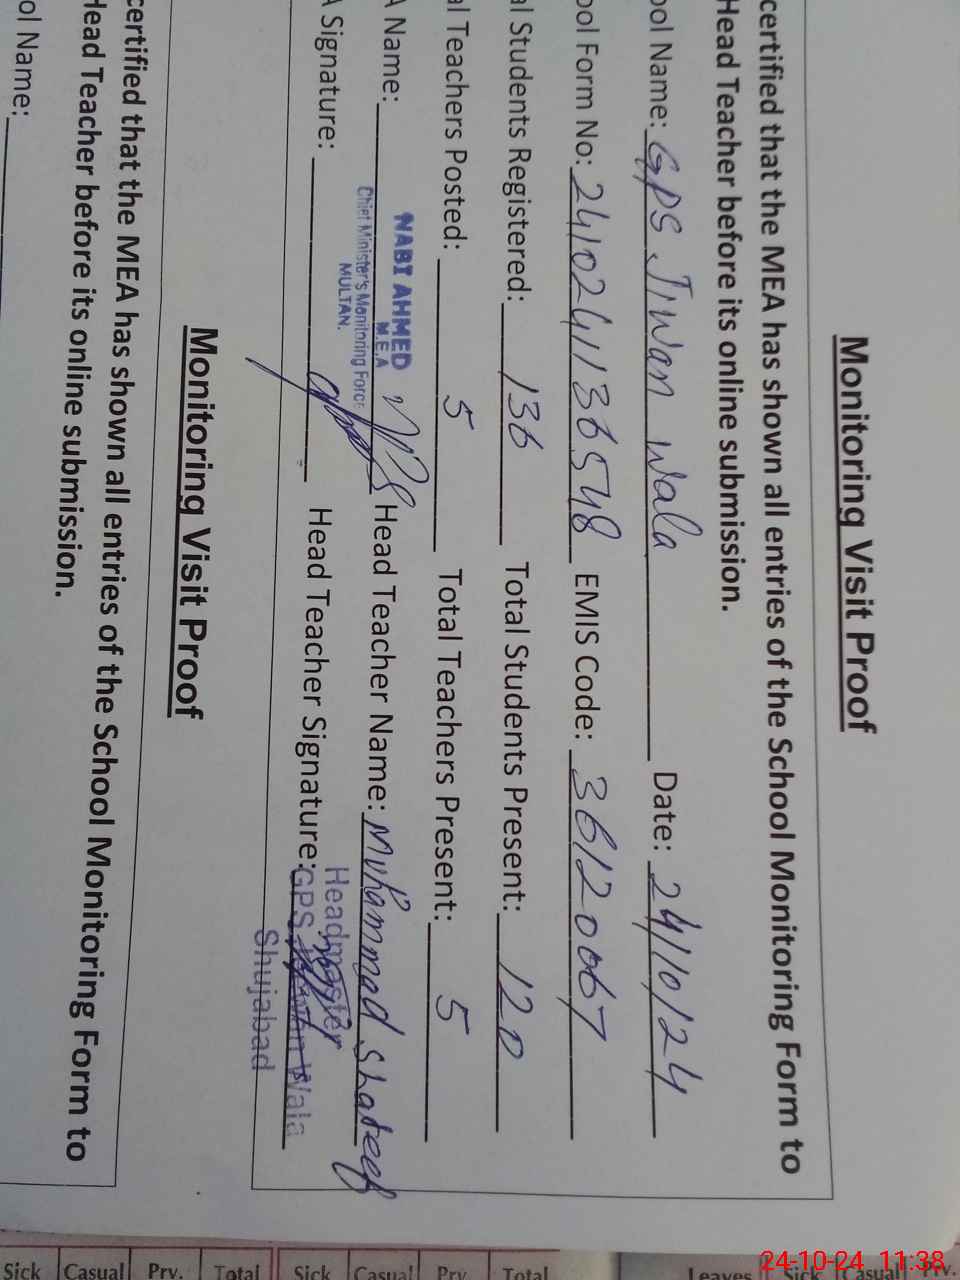 Monitoring Visit Proof
certified that the MEA has shown all entries of the School Monitoring Form to
Head Teacher before its online submission.
ool Name: GPS Jiwan Wala Date: 24/10/24
ool Form No: 2410241136548 EMIS Code: 36120067
al Students Registered: 136 Total Students Present: 120
al Teachers Posted: 5 Total Teachers Present: 5
A Name: Head Teacher Name: Muhammad Shareef
NABI AHMED
M.E.A
Chief Minister's Monitoring Force
MULTAN.
A Signature: Head Teacher Signature:
Headmaster
GPS Wala
Shujabad
Monitoring Visit Proof
certified that the MEA has shown all entries of the School Monitoring Form to
Head Teacher before its online submission.
ool Name:
Sick Casual Prv. Total Sick Casual Prv. Total Leaves Sick Casual Prv.
24-10-24 11:38